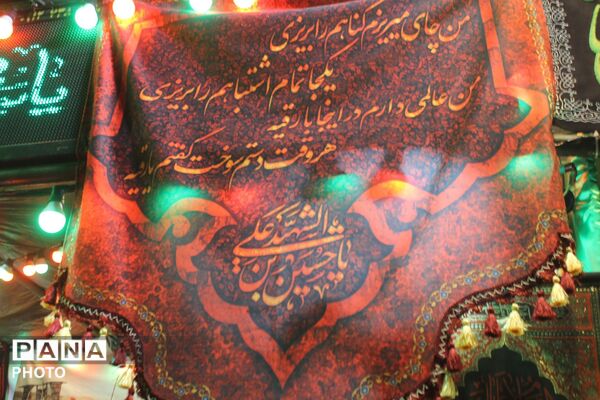 من چای میریزم گناهم را بریزی
یکجا تمام اشتباهم را بریزی
من عالمی دارم در اینجا با رقیه
هر وقت دستم سوخت گفتم یا رقیه
یا حسین بن علی الشهید
PANA
PHOTO